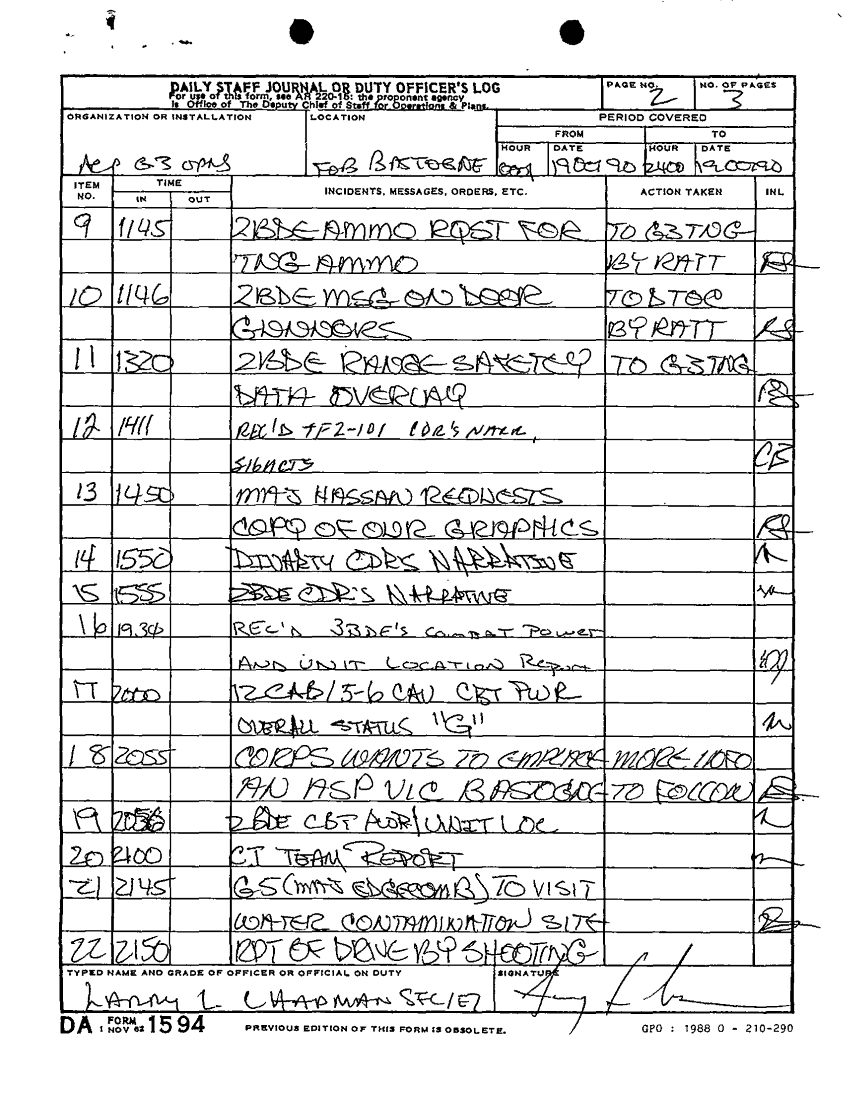 DAILY STAFF JOURNAL OR DUTY OFFICER'S LOG
For use of this form, see AR 220-15; the proponent agency
is Office of The Deputy Chief of Staff for Operations & Plans.
PAGE NO.
2
NO. OF PAGES
3
ORGANIZATION OR INSTALLATION
G3 OPNS
LOCATION
FOB BASTOGNE
PERIOD COVERED
FROM
TO
HOUR
DATE
HOUR
DATE
0001
19OCT90
2400
19OCT90
ITEM NO.
TIME
IN
OUT
INCIDENTS, MESSAGES, ORDERS, ETC.
ACTION TAKEN
INL
9 1145 2BDE AMMO RQST FOR TO G3 TNG
TNG AMMO BY RATT
10 1146 2BDE MSG ON DOOR TO DTOC
GUNNORS BY RATT
11 1320 2BDE RANGE SAFETEY TO G3 TNG
DATA OVERLAY
12 1411 REC'D TF2-101 CDR'S NARR,
SIGACTS CB
13 1450 MAJ HASSAN REQUESTS
COPY OF OUR GRAPHICS
14 1550 DIVARTY CDRS NARRATIVE
15 1555 2BDE CDR'S NARRATIVE
16 1930 REC'D 3BDE'S COMBAT POWER
AND UNIT LOCATION REPORT
17 2000 12 CAB/5-6 CAV CBT PWR
OVERALL STATUS "G"
18 2055 CORPS WANTS TO EMPLACE MORE INFO
AN ASP VIC BASTOGNE TO FOLLOW
19 2056 2BDE CBT PWR/UNIT LOC
20 2100 CI TEAM REPORT
21 2145 G5 (MAJ EDGECOMB) TO VISIT
WATER CONTAMINATION SITE
22 2150 RPT OF DRIVE BY SHOOTING
TYPED NAME AND GRADE OF OFFICER OR OFFICIAL ON DUTY
LARRY L. CHAPMAN SFC/E7
SIGNATURE
DA FORM 1 NOV 62 1594
PREVIOUS EDITION OF THIS FORM IS OBSOLETE.
GPO : 1988 O - 210-290